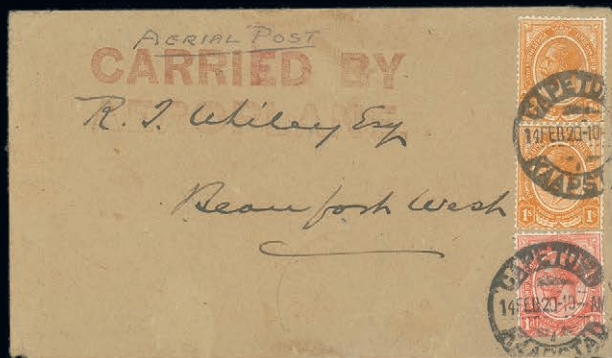 AERIAL POST
CARRIED BY
AEROPLANE.
R. J. Whiley Esq
Beaufort West
CAPETOWN
14FEB20-10
KAAPST
1s 1s
CAPETOWN
14FEB20-10- AM
KAAPSTAD
1d